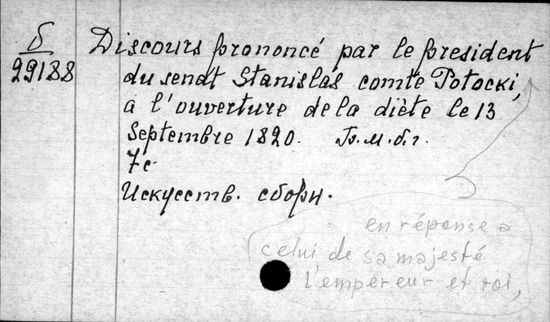 б
29188
Discours prononcé par le president
du senat Stanislas comte Potocki,
à l'ouverture de la diète le 13
Septembre 1820. Б. м. б. г.
7 с.
Искусств. сборн.
en réponse a
celui de sa majesté
l'empereur et roi,